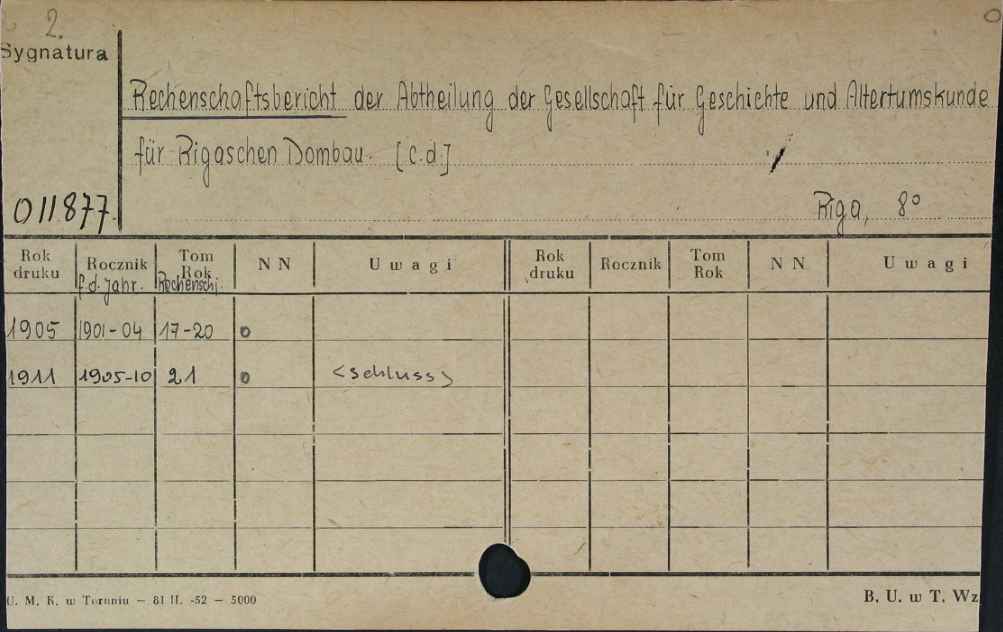 2.
Sygnatura
Rechenschaftsbericht der Abtheilung der Gesellschaft für Geschichte und Altertumskunde
für Rigaschen Dombau. [c.d.]
011877.
Riga, 8°
Rok druku Rocznik Tom Rok N N Uwagi Rok druku Rocznik Tom Rok N N Uwagi
f.d. Jahr. Rechenschi.
1905 1901-04 17-20 o
1911 1905-10 21 o <Schluss>
U. M. K. w Toruniu — 81 II. -52 — 5000
B. U. w T. Wz